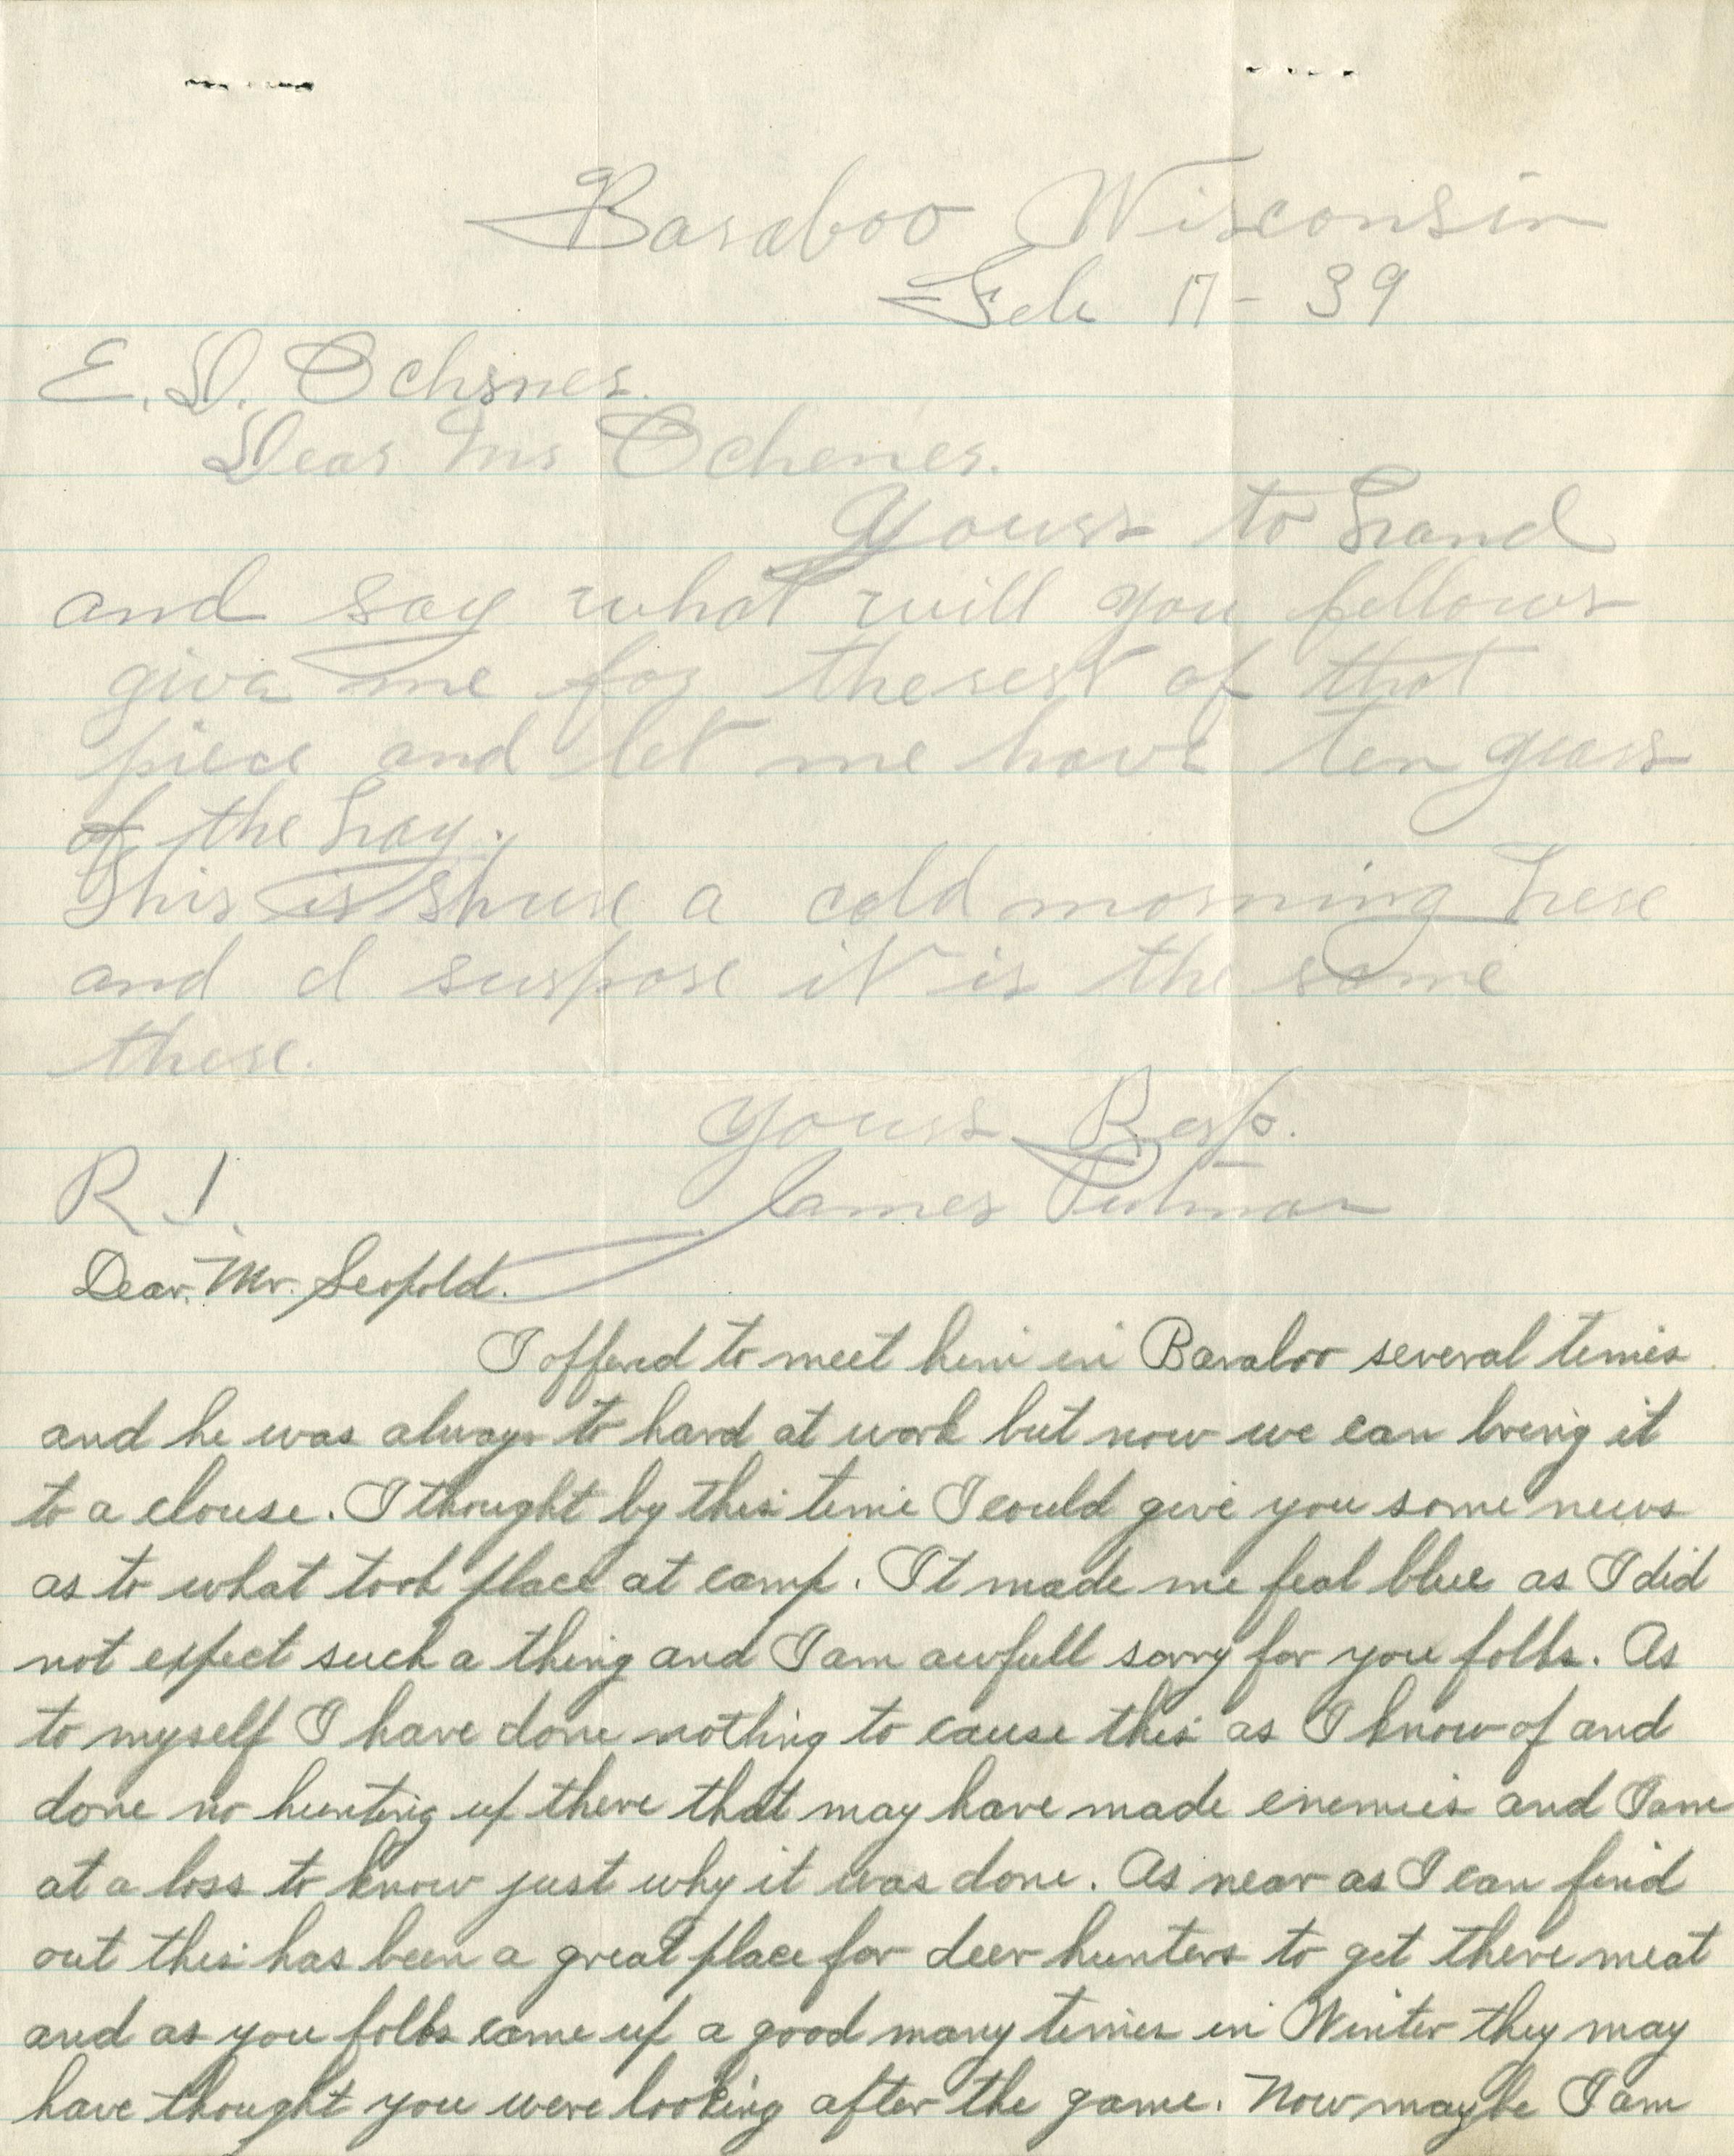 Baraboo Wisconsin
Feb 17 - 39
E. D. Ochsner.
Dear Mr Ochener.
Yours to hand
and say what will you fellows
give me for therest of that
piece and let me have ten years
of the hay.
This is shure a cold morning here
and I suspose it is the same
there.
Yours Resp.
R 1. James
Dear, Mr. Leopold.
I offered to meet him in Baraboo several times
and he was always to hard at work but now we can bring it
to a clouse. I thought by this time I could give you some news
as to what took place at camp. It made me feal blue as I did
not expect such a thing and I am awfull sorry for you folks. As
to myself I have done nothing to cause this as I know of and
done no hunting up there that may have made enemies and I am
at a loss to know just why it was done. As near as I can find
out this has been a great place for deer hunters to get there meat
and as you folks come up a good many times in Winter they may
have thought you were looking after the game. Now maybe I am